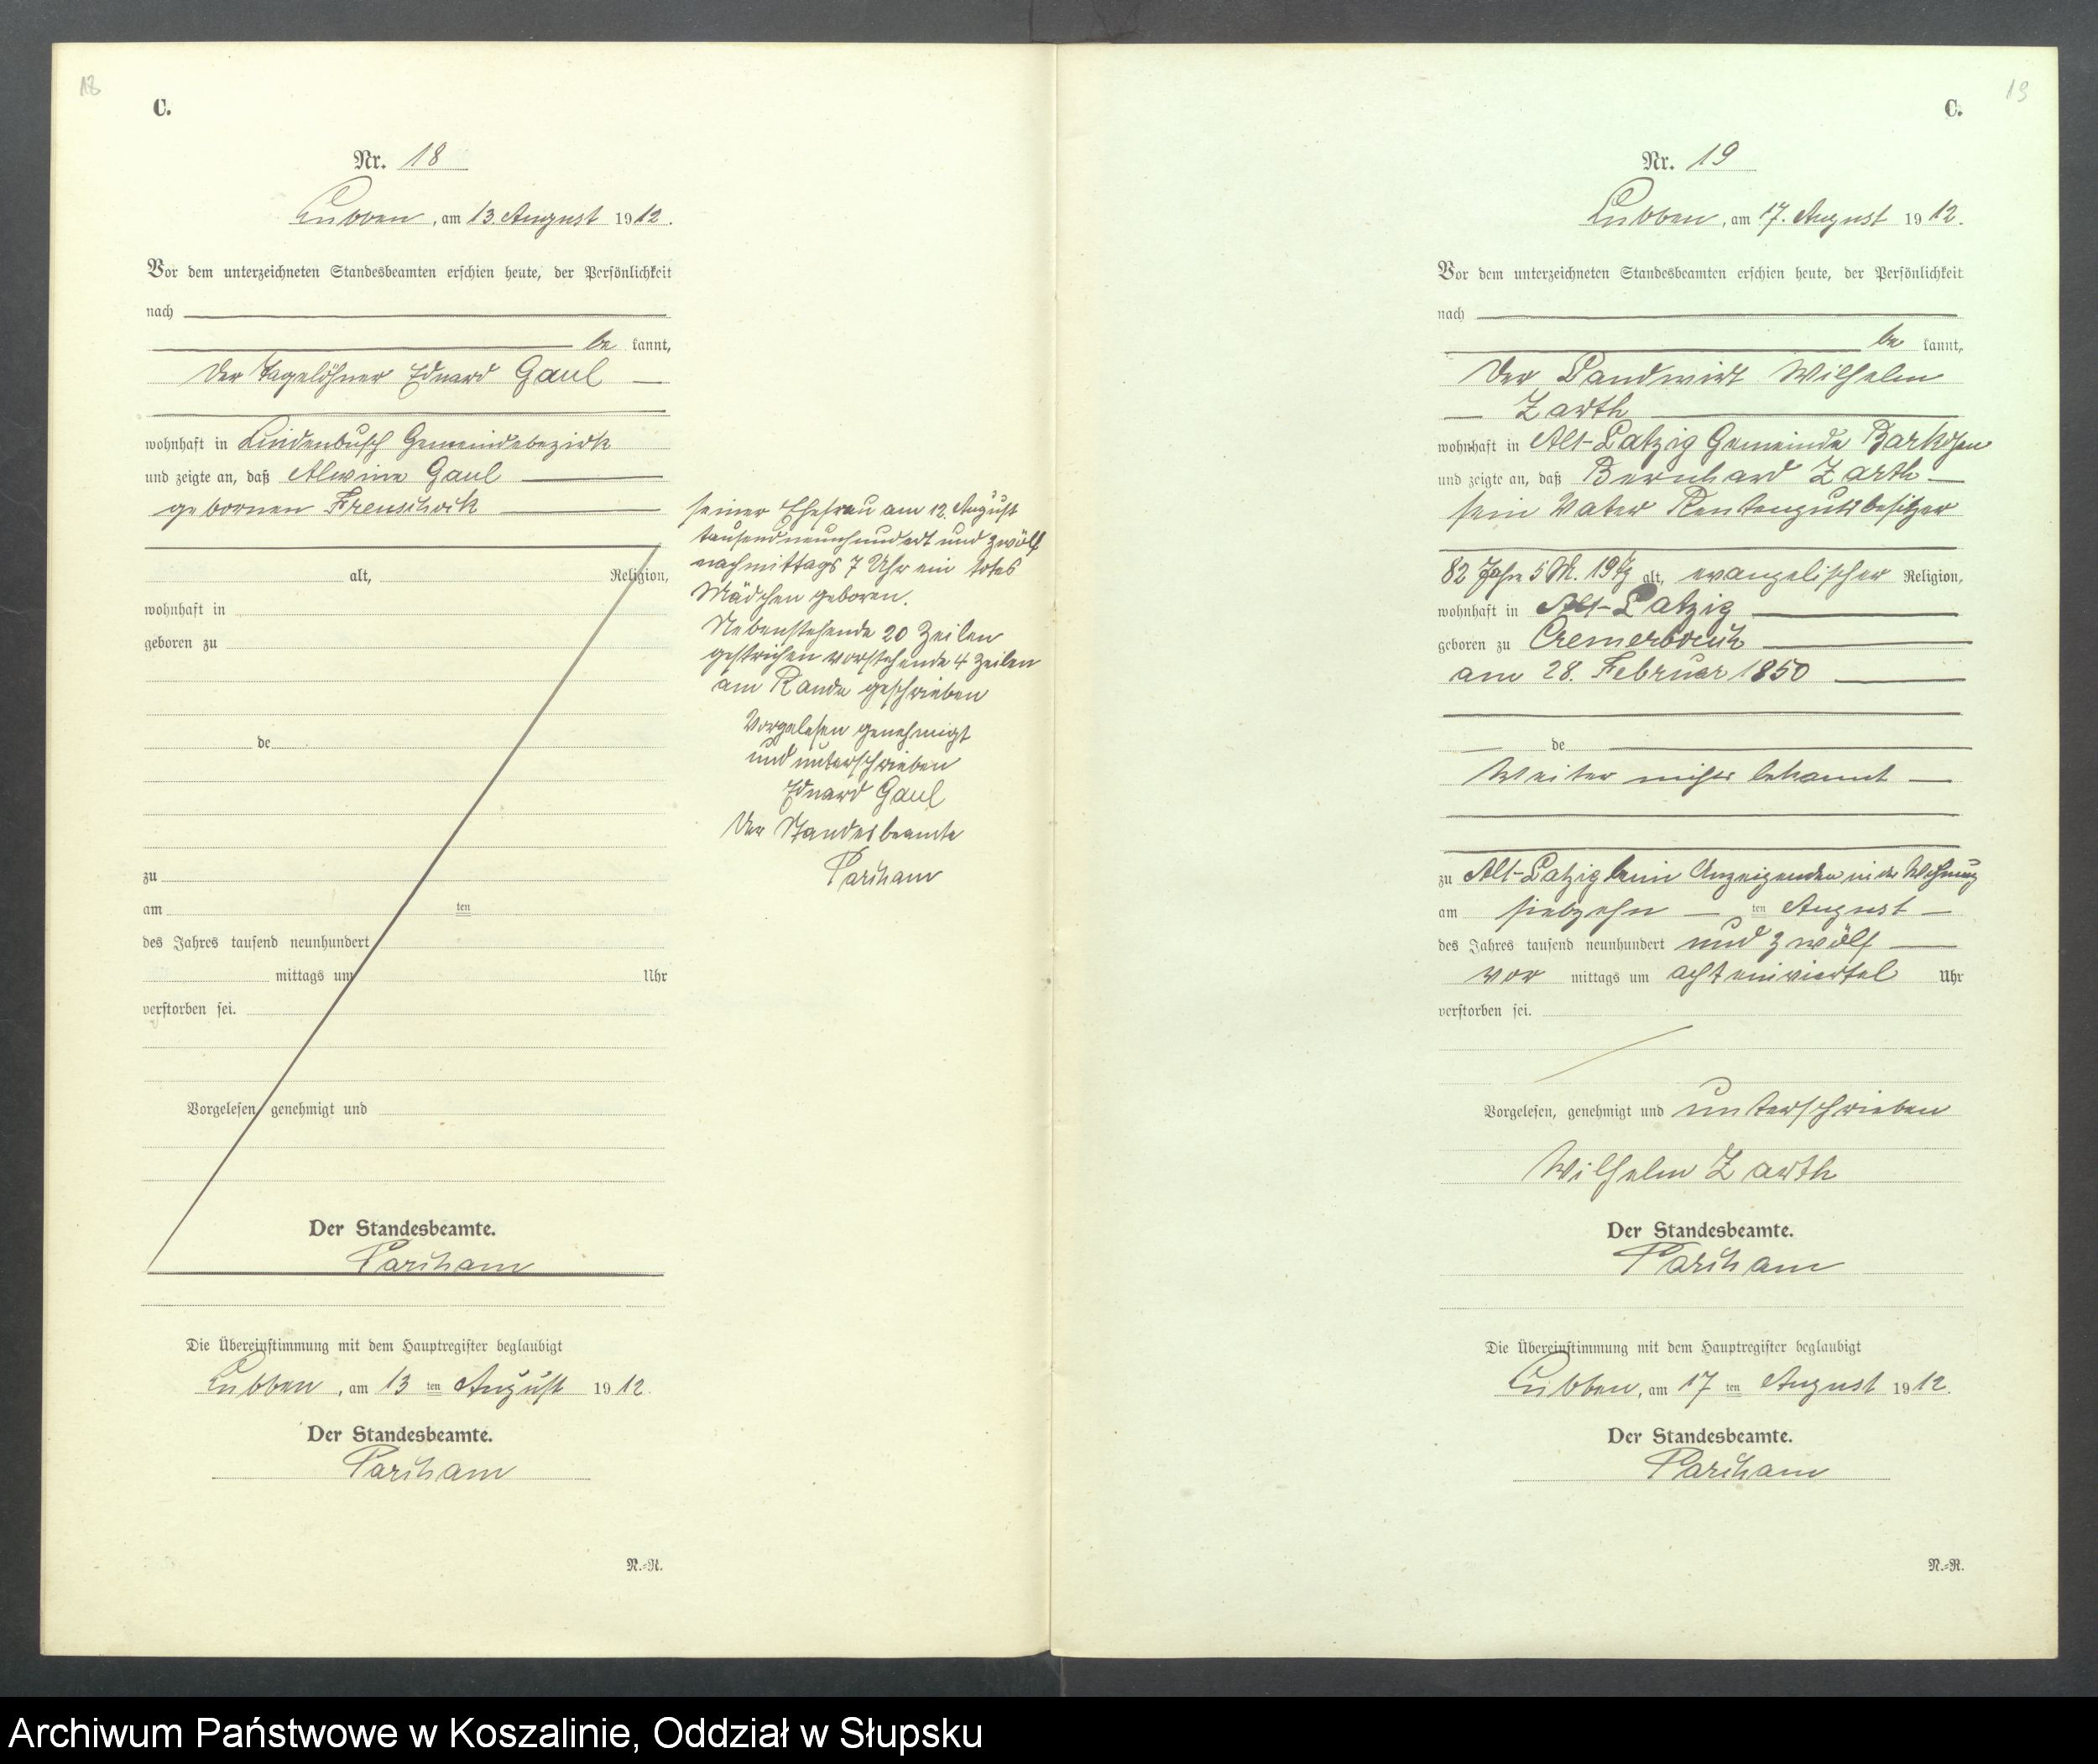 18
C.
Nr. 18
Lubben, am 13. August 1912.
Vor dem unterzeichneten Standesbeamten erschien heute, der Persönlichkeit
nach
be kannt,
der Tagelöhner Eduard Gaul
wohnhaft in Lindenbusch Gemeindebezirk
und zeigte an, daß Alwine Gaul
geborenen
alt, Religion,
wohnhaft in
geboren zu
de
zu
am ten
des Jahres tausend neunhundert
mittags um Uhr
verstorben sei.
Vorgelesen, genehmigt und
Der Standesbeamte.
Die Übereinstimmung mit dem Hauptregister beglaubigt
Lubben, am 13 ten August 1912.
Der Standesbeamte.
N.-R.
seiner Ehefrau am 12. August
tausendneunhundert und zwölf
nachmittags 7 Uhr ein totes
Mädchen geboren.
Nebenstehende 20 Zeilen
gestrichen vorstehende 4 Zeilen
am Rande geschrieben
Vorgelesen genehmigt
und unterschrieben
Eduard Gaul
Der Standesbeamte
19
C.
Nr. 19
Lubben, am 17. August 1912.
Vor dem unterzeichneten Standesbeamten erschien heute, der Persönlichkeit
nach
be kannt,
der Landwirt Wilhelm
Zarth
wohnhaft in Alt-Latzig Gemeinde
und zeigte an, daß Bernhard Zarth
sein Vater Rentengutsbesitzer
82 Jahre 5 M. 19 Tg alt, evangelischer Religion,
wohnhaft in Alt-Latzig
geboren zu Cremerbruch
am 28. Februar 1850
de
Weiter nichts bekannt
zu Alt-Latzig beim Anzeigenden in der Wohnung
am siebzehn ten August
des Jahres tausend neunhundert und zwölf
vor mittags um acht einviertel Uhr
verstorben sei.
Vorgelesen, genehmigt und unterschrieben
Wilhelm Zarth
Der Standesbeamte.
Die Übereinstimmung mit dem Hauptregister beglaubigt
Lubben, am 17 ten August 1912.
Der Standesbeamte.
N.-R.
Archiwum Państwowe w Koszalinie, Oddział w Słupsku